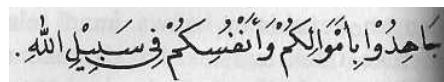 جَاهِدُوْا بِأَمْوَالِكُمْ وَأَنْفُسِكُمْ فِي سَبِيْلِ اللهِ.